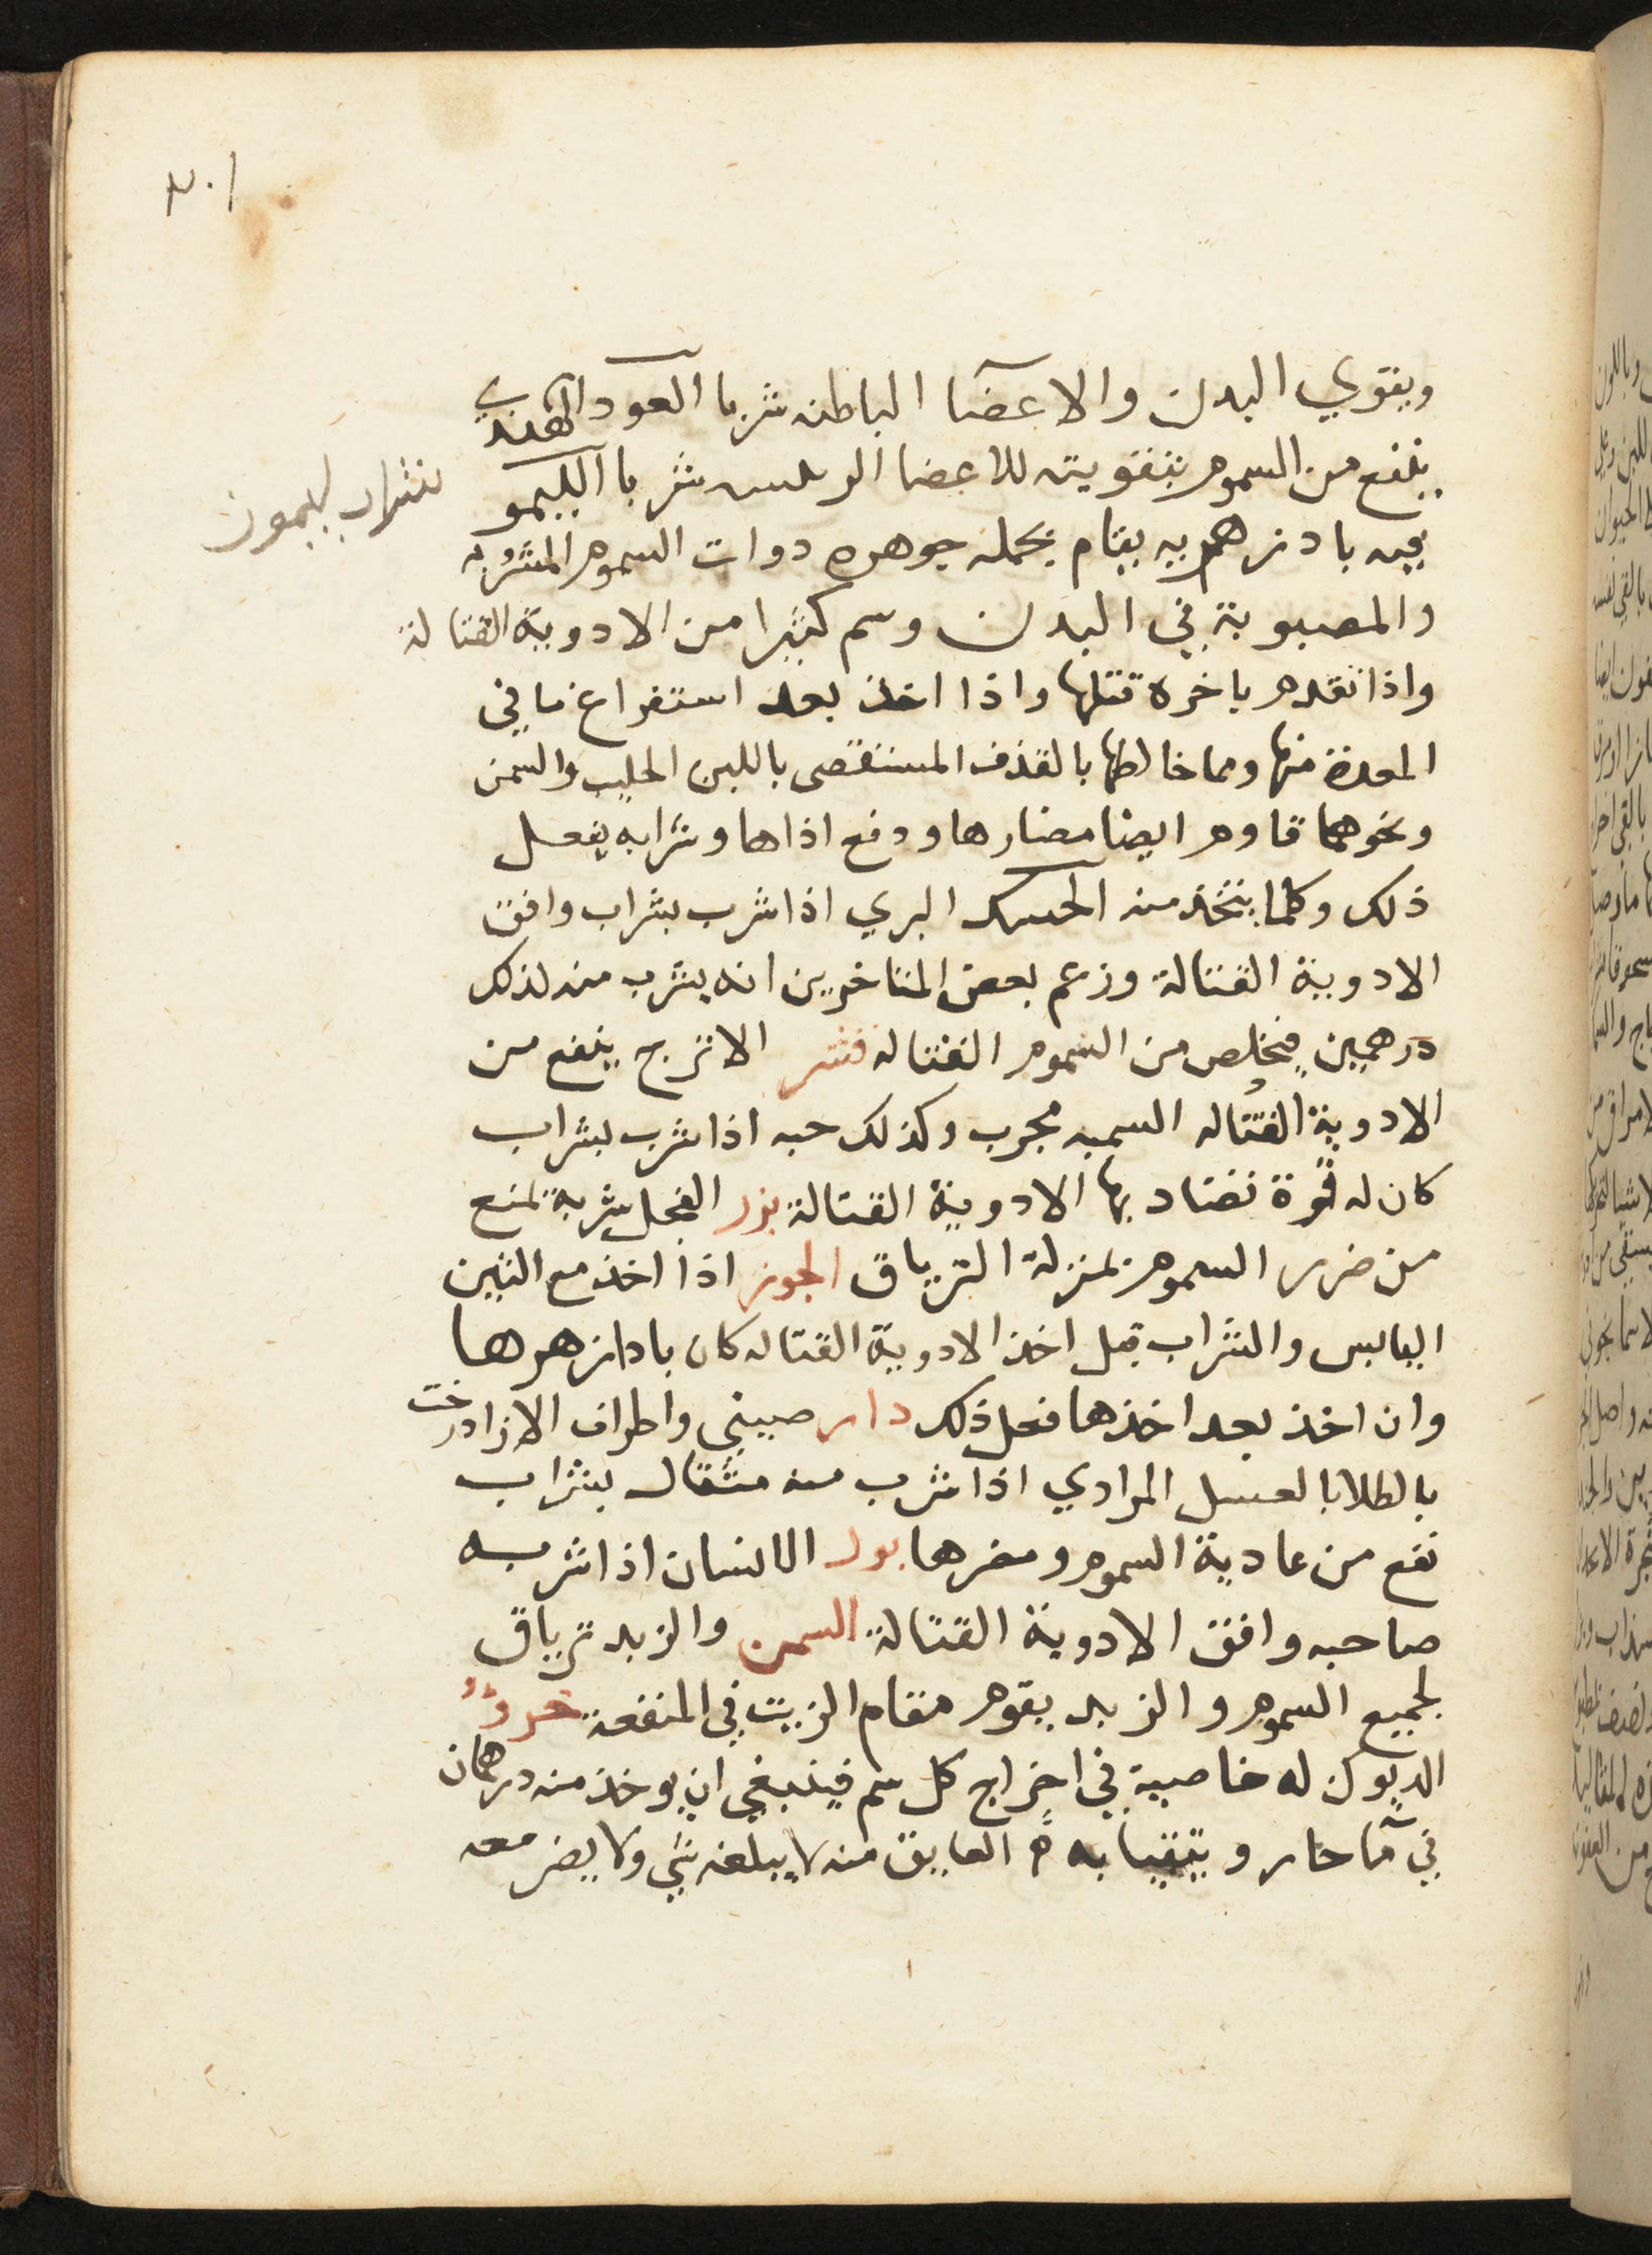 ٣٠١
ويقوي البدن والاعضآ الباطنه شربا العود الهندي
ينفع من السموم بتقويته للاعضا الرييسه شربا الليمو
شراب ليمون
فيه بادزهريه يقام بجمله جوهره دوات السموم المشروبه
والمصبوبة في البدن وسم كثيرا من الادوية القتالة
واذا تقدم باخره قتلها واذا اخذ بعد استفراغ ما في
المعدة منها ومما خالطها بالقذف المستقصى باللبن الحليب والسمن
ونحوهما قاوم ايضا مضارها ودفع اذاها وشرابه يفعل
ذلك وكلما يتخذ منه الحسك البري اذا شرب بشراب وافق
الادوية القتالة وزعم بعض المتاخرين انه يشرب منه لذلك
درهمين فيخلص من السموم القتاله قشر الاترج ينفع من
الادوية القتاله السميه مجرب وكذلك حبه اذا شرب بشراب
كان له قوة تضاد بها الادوية القتالة بزر الفجل شربه تمنع
من ضرر السموم بمنزلة الترياق الجوز اذا اخذ مع التين
اليابس والشراب قبل اخذ الادوية القتاله كان بادازهرها
وان اخذ بعد اخذها فعل ذلك دار صيني واطراف الازادرخت
بالطلا بالعسل المرادي اذا شرب منه مثقال بشراب
نفع من عادية السموم ومضرها بول الانسان اذا شربه
صاحبه وافق الادوية القتالة السمن والزبد ترياق
لجميع السموم والزبد يقوم مقام الزيت في المنفعة خروُ
الديوك له خاصية في اخراج كل سم فينبغي ان يوخذ منه درهمان
في مآ حار ويتقيا به العايق منه لا يبلغه شي ولا يضر معه